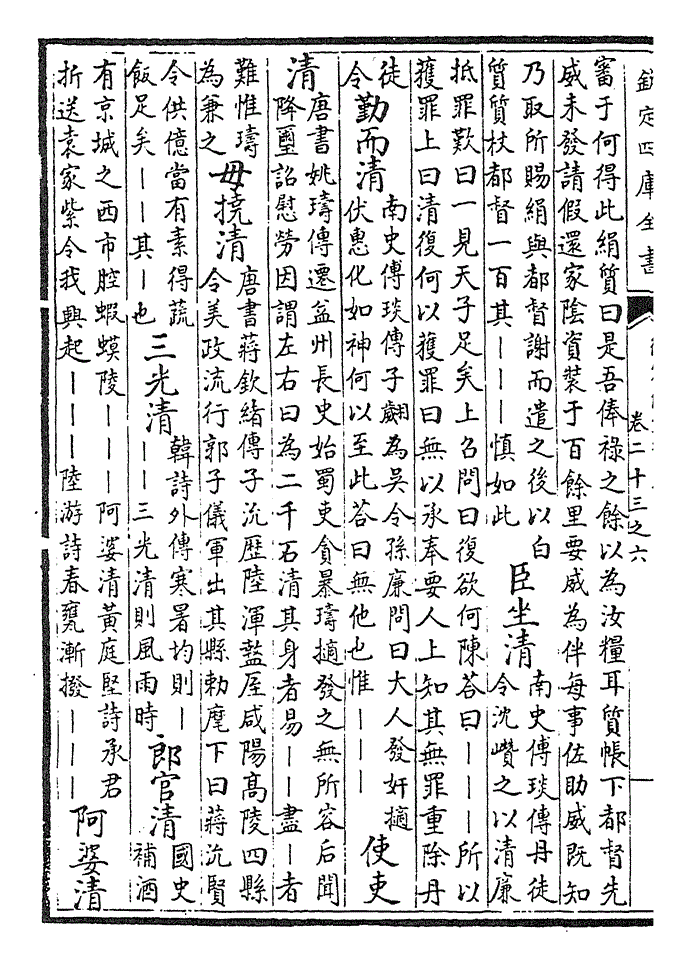 欽定四庫全書
卷二十三之六
審于何得此絹質曰是吾俸禄之餘以為汝糧耳質帳下都督先
威未發請假還家陰資裝于百餘里要威為伴每事佐助威既知
乃取所賜絹與都督謝而遣之後以白
質質杖都督一百其丨丨丨慎如此
臣坐清
南史傅琰傳丹徒
令沈巑之以清廉
抵罪歎曰一見天子足矣上召問曰復欲何陳答曰丨丨丨所以
獲罪上曰清復何以獲罪曰無以承奉要人上知其無罪重除丹
徒
令
勤而清
南史傅琰傳子翽為吳令孫廉問曰大人發奸擿
伏惠化如神何以至此答曰無他也惟丨丨丨
使吏
清
唐書姚璹傳遷益州長史始蜀吏貪暴璹擿發之無所容后聞
降璽詔慰勞因謂左右曰為二千石清其身者易丨丨盡丨者
難惟璹
為兼之
毋撓清
唐書蔣欽緒傳子沇歷陸渾盩厔咸陽高陵四縣
令美政流行郭子儀軍出其縣勅麾下曰蔣沇賢
令供億當有素得蔬
飯足矣丨丨其丨也
三光清
韓詩外傳寒暑均則丨
丨丨三光清則風雨時
郎官清
國史
補酒
有京城之西市腔蝦蟆陵丨丨丨阿婆清黃庭堅詩承君
折送袁家紫令我興起丨丨丨陸游詩春甕漸撥丨丨丨
阿婆清